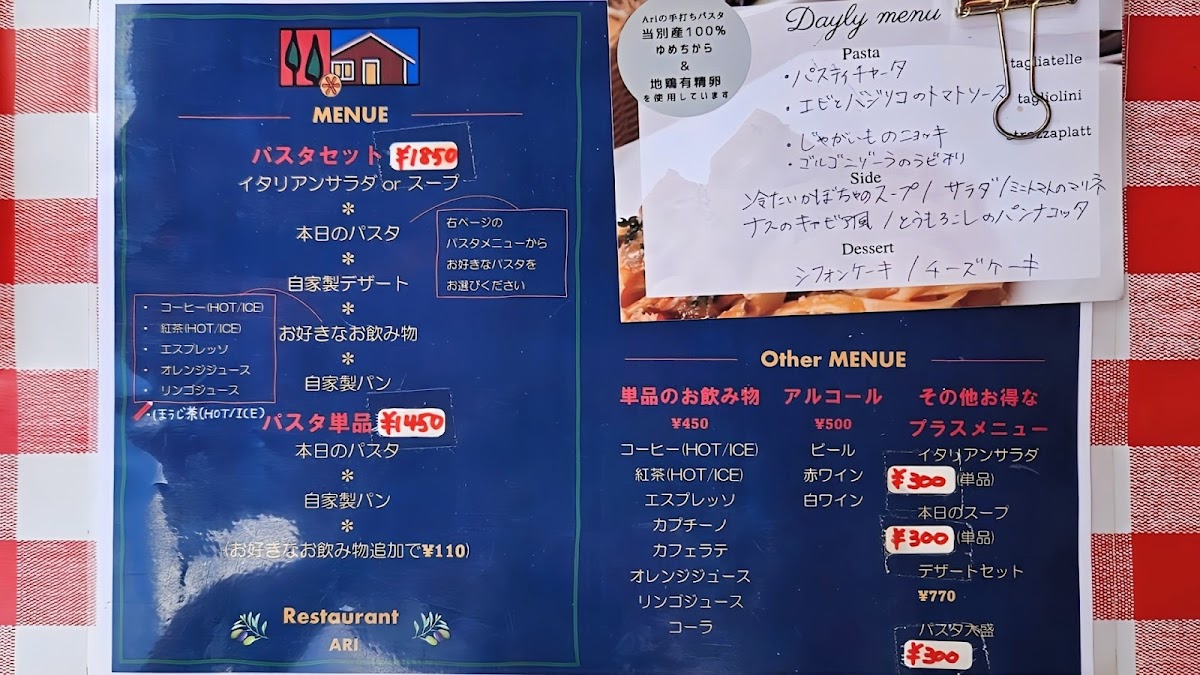 MENUE
パスタセット ¥1850
イタリアンサラダ or スープ
*
本日のパスタ
*
自家製デザート
*
お好きなお飲み物
*
自家製パン
右ページの
パスタメニューから
お好きなパスタを
お選びください
・ コーヒー(HOT/ICE)
・ 紅茶(HOT/ICE)
・ エスプレッソ
・ オレンジジュース
・ リンゴジュース
・ほうじ茶(HOT/ICE)
パスタ単品 ¥1450
本日のパスタ
*
自家製パン
*
(お好きなお飲み物追加で¥110)
Restaurant
ARI
Ariの手打ちパスタ
当別産100%
ゆめちから
&
地鶏有精卵
を使用しています
Dayly menu
Pasta
・パスティチャータ
・エビとバジリコのトマトソース
・じゃがいものニョッキ
・ゴルゴンゾーラのラビオリ
tagliatelle
tagliolini
strozzaplatt
Side
冷たいかぼちゃのスープ / サラダ / ミニトマトのマリネ
ナスのキャビア風 / とうもろこしのパンナコッタ
Dessert
シフォンケーキ / チーズケーキ
Other MENUE
単品のお飲み物
¥450
コーヒー(HOT/ICE)
紅茶(HOT/ICE)
エスプレッソ
カプチーノ
カフェラテ
オレンジジュース
リンゴジュース
コーラ
アルコール
¥500
ビール
赤ワイン
白ワイン
その他お得な
プラスメニュー
イタリアンサラダ
¥300 (単品)
本日のスープ
¥300 (単品)
デザートセット
¥770
パスタ大盛
¥300